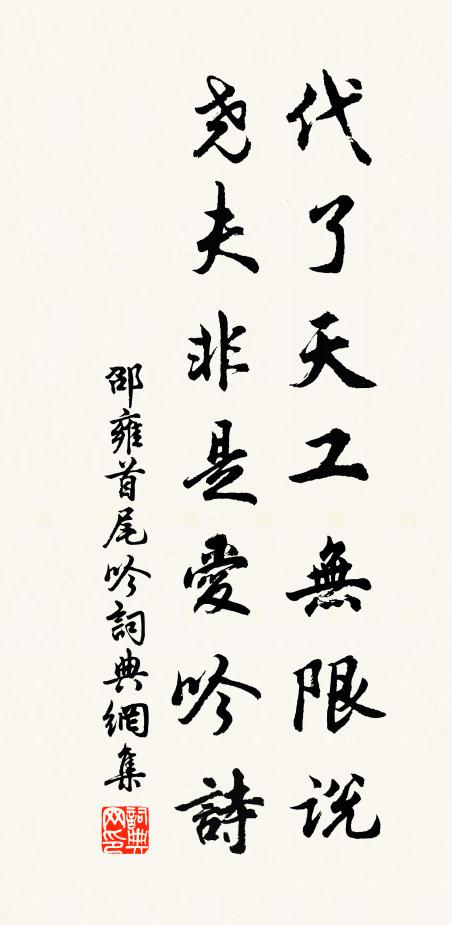 代了天工無限說
堯夫非是愛吟詩
邵雍首尾吟詞典網集
詞典网印